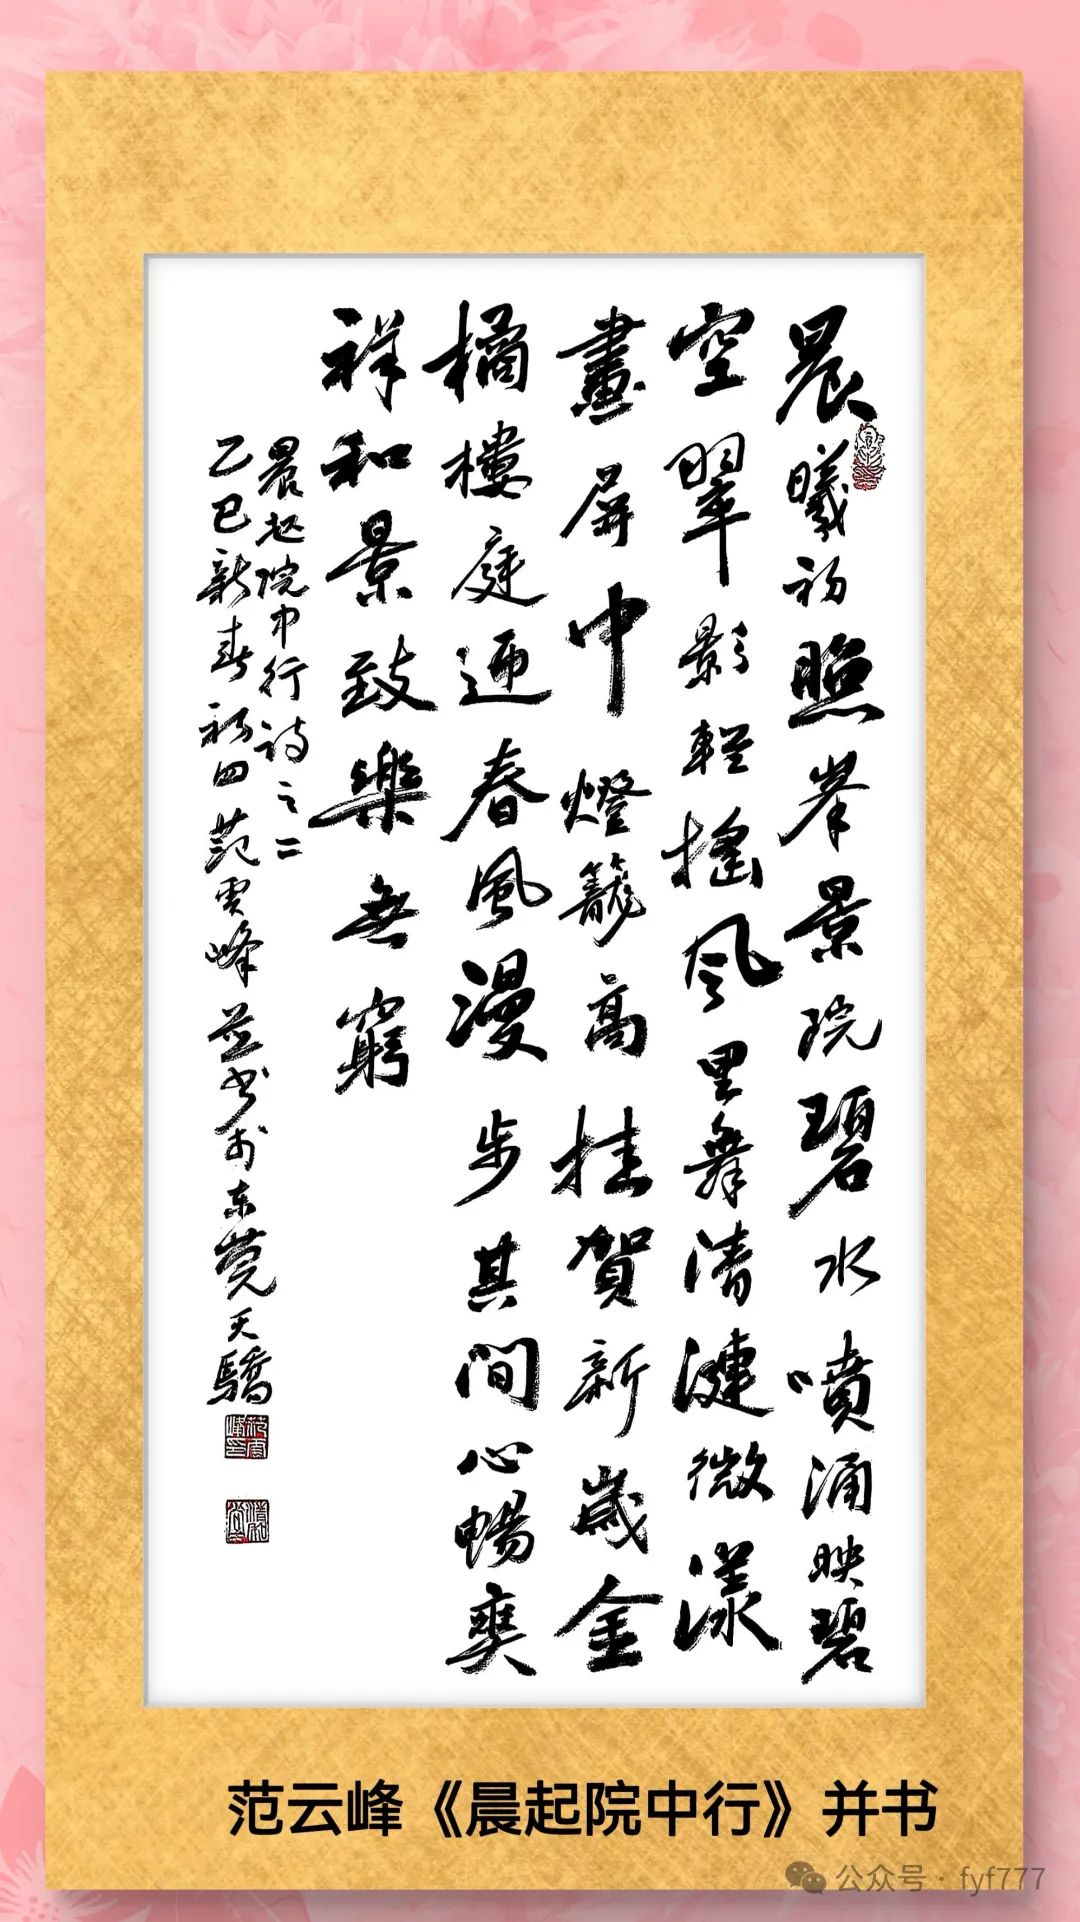 晨曦初照峯景院碧水噴涌映碧
空翠影輕搖風里舞清漣微漾
畫屏中燈籠高挂賀新歲金
橘樓庭迎春風漫步其間心暢爽
祥和景致樂無窮
晨起院中行诗之二
乙巳新春初四范雲峰并书於东莞天驕
范云峰《晨起院中行》并书
公众号·fyf777